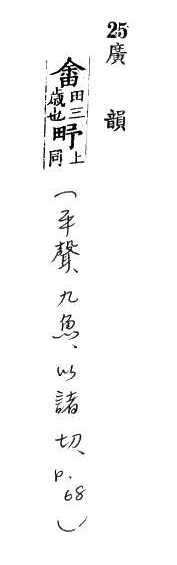 25 廣韻
畬田三歲也上同
(平聲、九魚、以諸切、p.68)